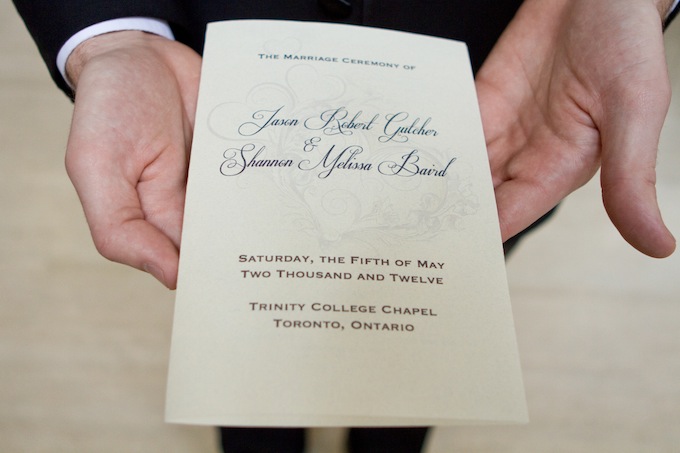 The Marriage Ceremony of
Jason Robert Gulcher
&
Shannon Melissa Baird
Saturday, the Fifth of May
Two Thousand and Twelve
Trinity College Chapel
Toronto, Ontario